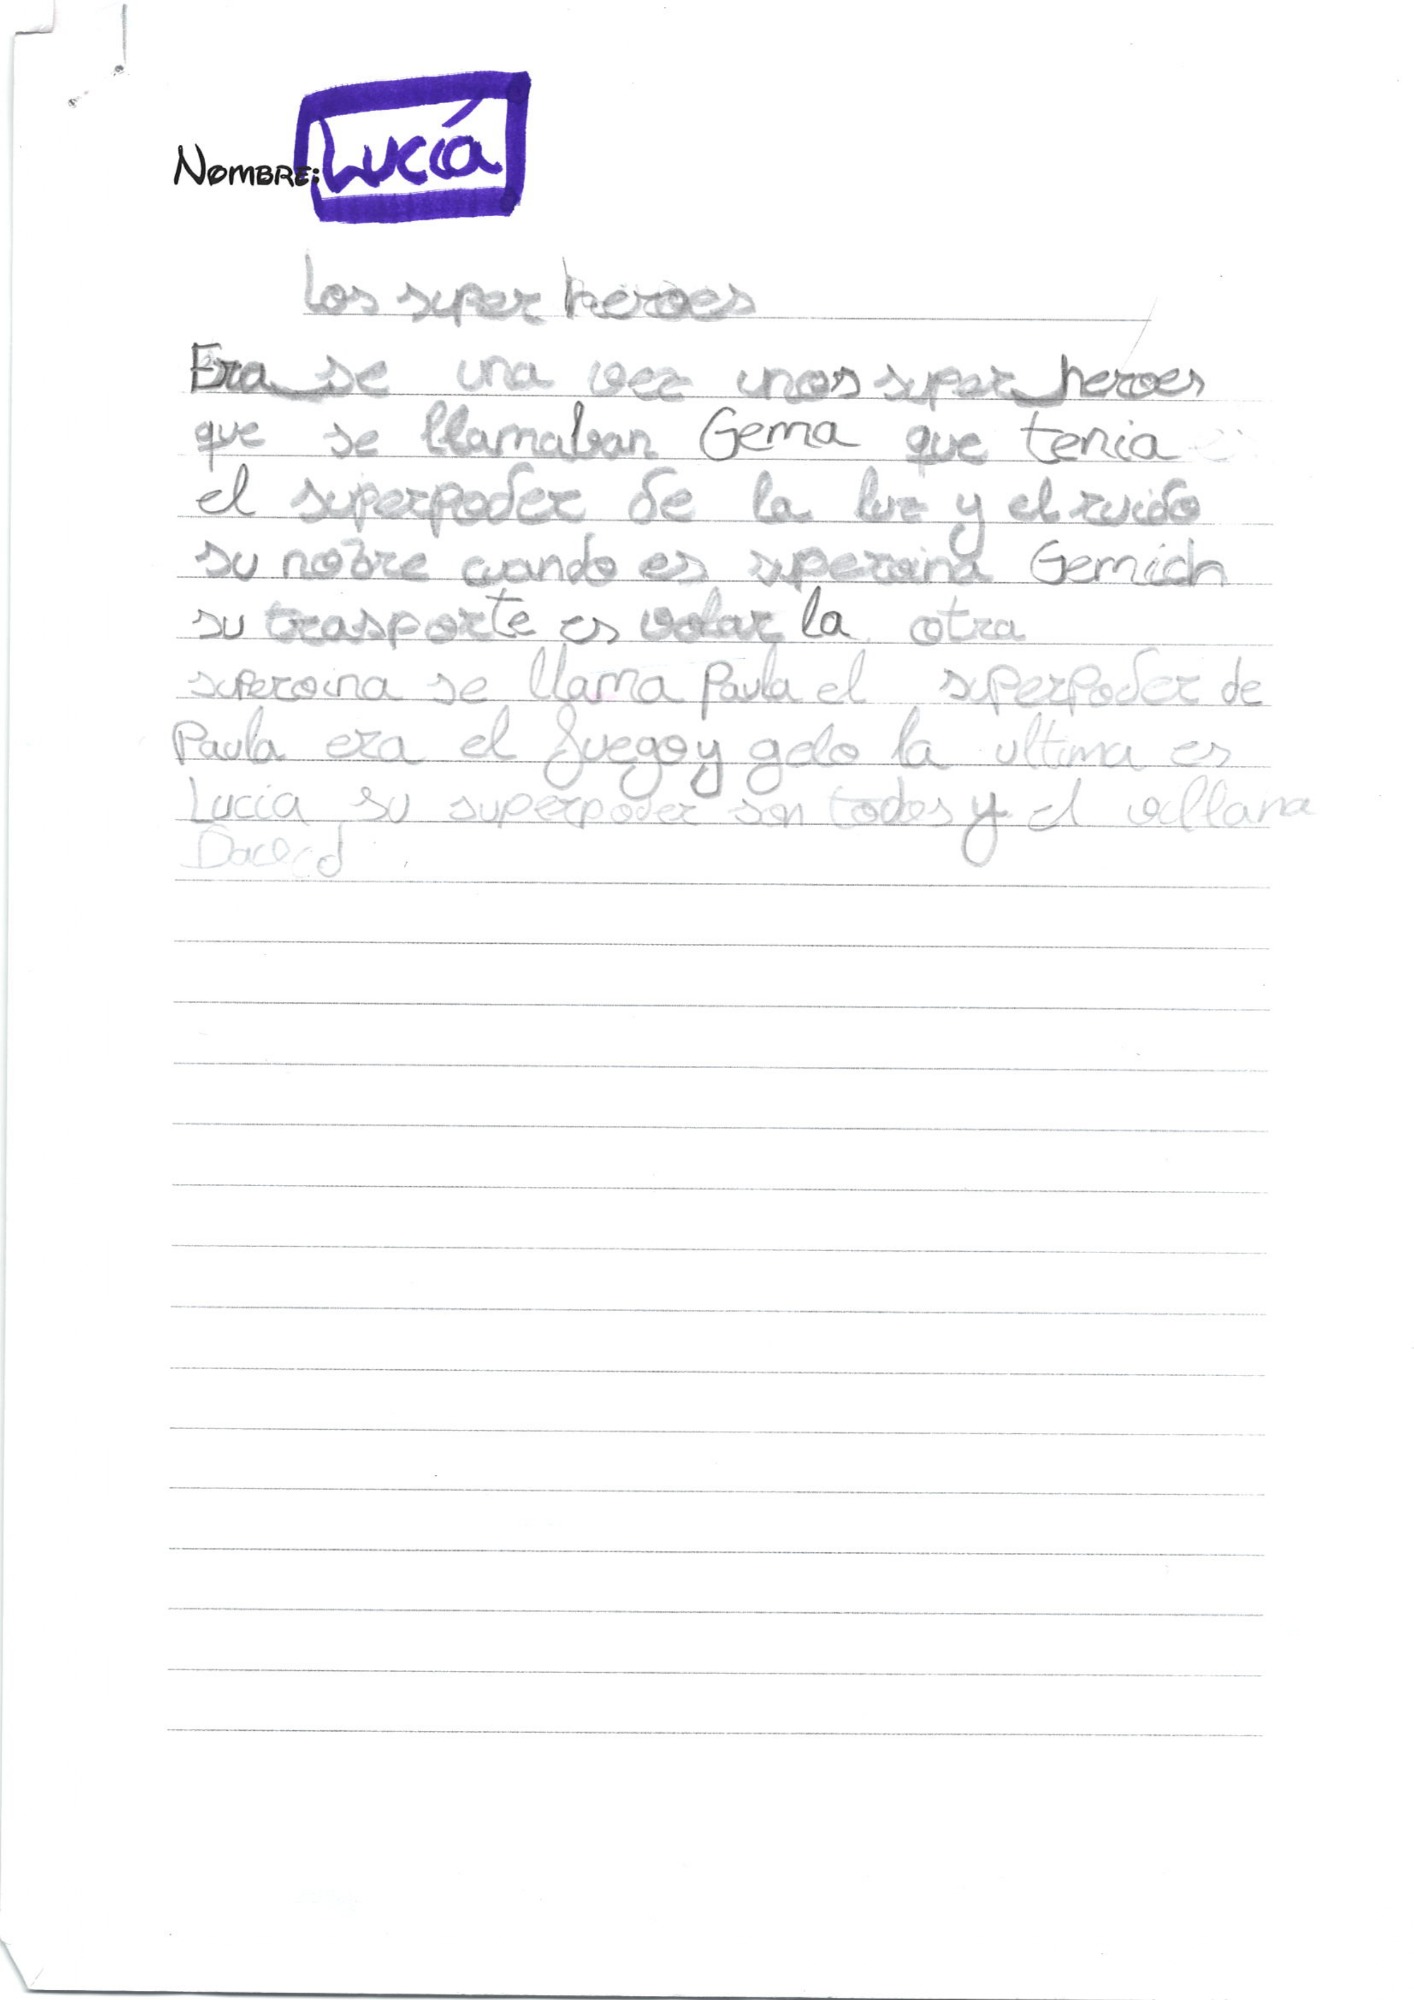 NOMBRE: Lucía
Los super heroes
Era se una vez unos super heroes
que se llamaban Gema que tenia
el superpoder de la luz y el ruido
su nobre cuando es superoina Gemich
su trasporte es volar la otra
superoina se llama Paula el superpoder de
Paula era el fuego y gelo la ultima es
Lucia su superpoder son todos y el villana